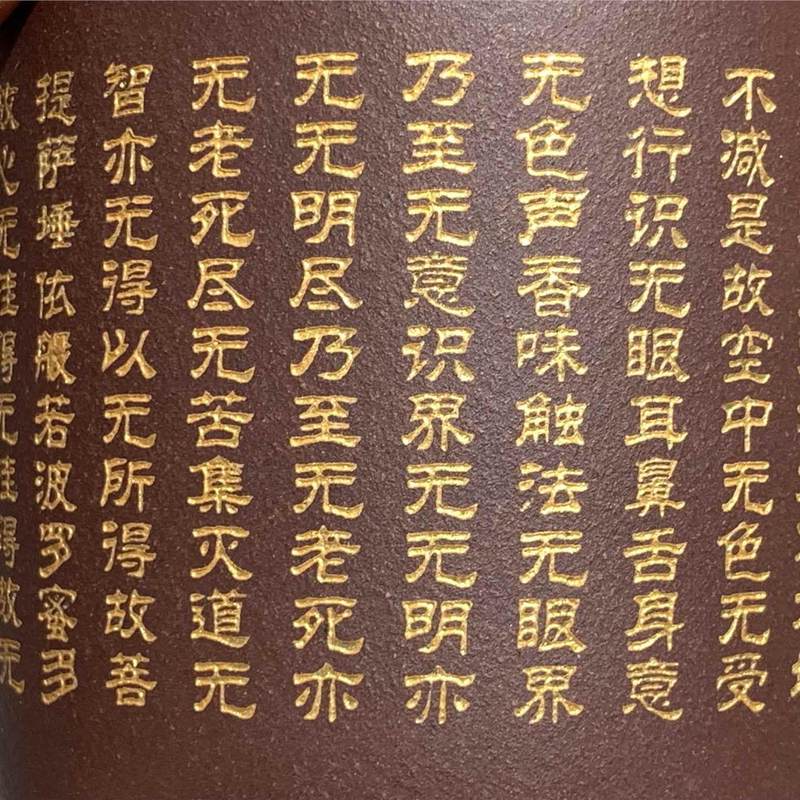 不减是故空中无色无受
想行识无眼耳鼻舌身意
无色声香味触法无眼界
乃至无意识界无无明亦
无无明尽乃至无老死亦
无老死尽无苦集灭道无
智亦无得以无所得故菩
提萨埵依般若波罗蜜多
心无无故无